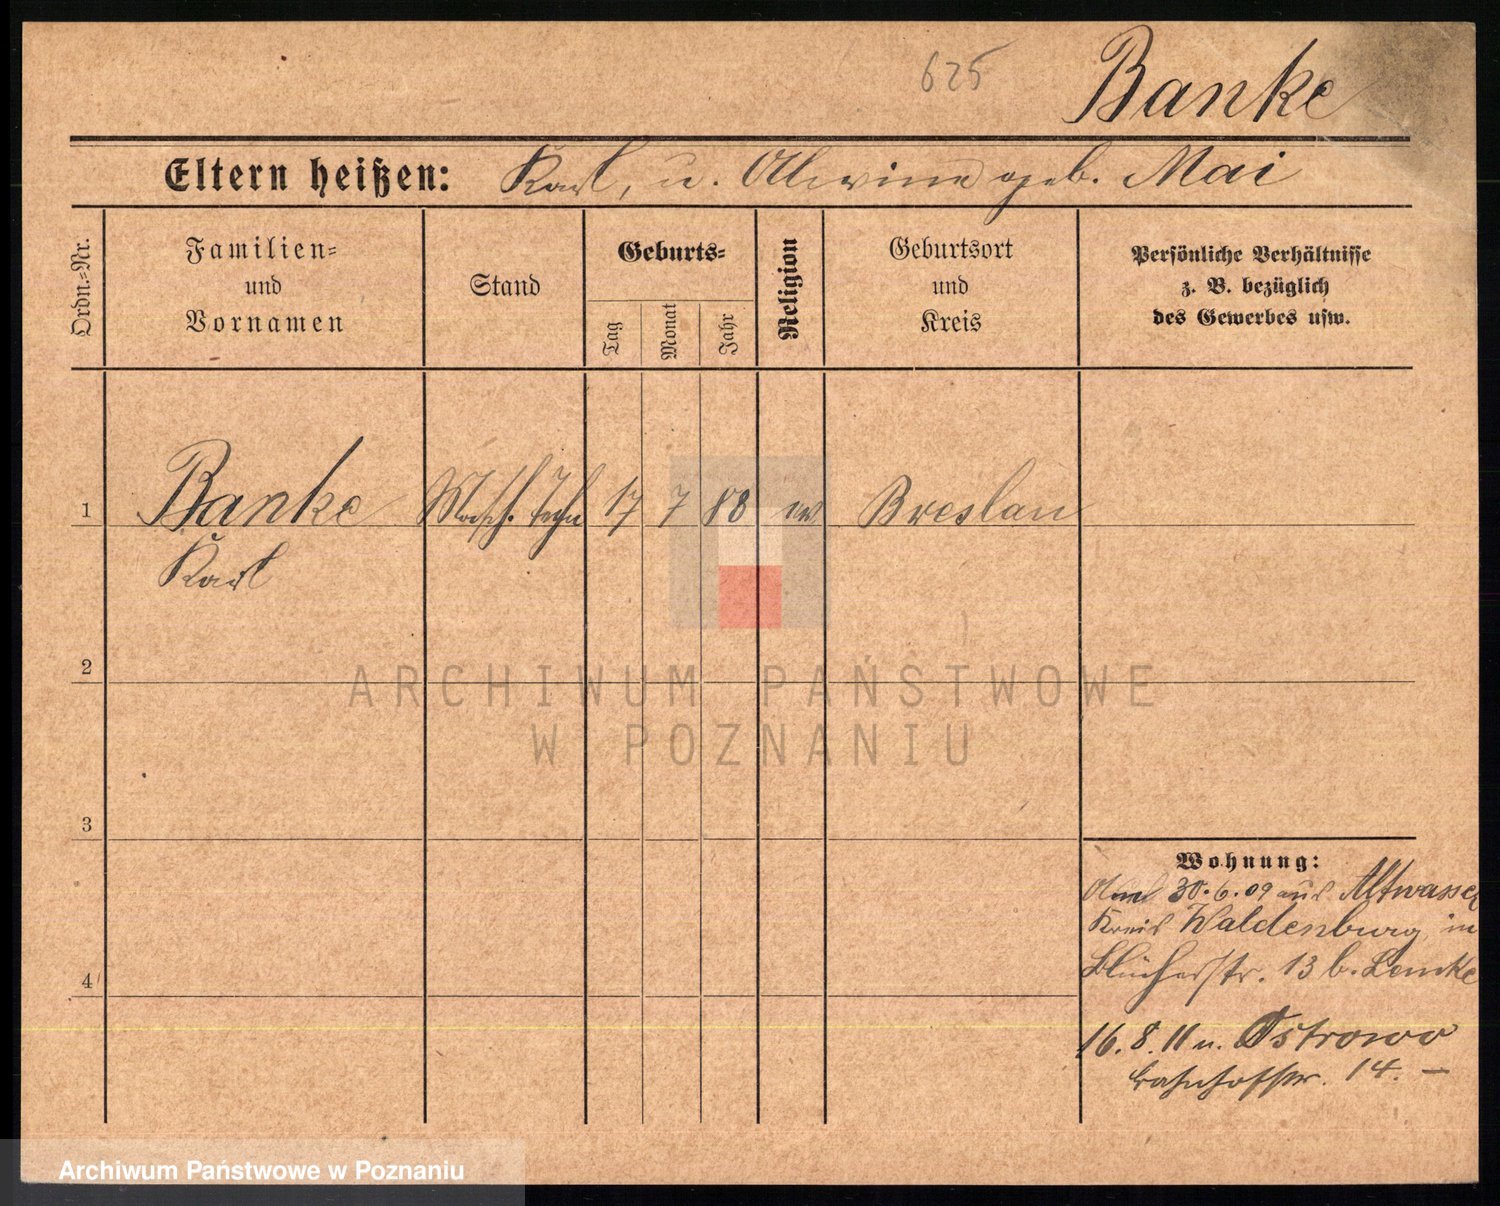 625
Banke
Eltern heißen: Karl, u. Alwine geb. Mai
Ordn.=Nr.
Familien=
und
Vornamen
Stand
Geburts=
Tag
Monat
Jahr
Religion
Geburtsort
und
Kreis
Persönliche Verhältnisse
z. B. bezüglich
des Gewerbes usw.
1 Banke Masch. Techn 17 7 88 ev Breslau
Karl
2
ARCHIWUM PAŃSTWOWE
W POZNANIU
3
Wohnung:
30.6.09 aus Altwasser
Kreis Waldenburg, in
Blücherstr. 13 b. Lemke
4
16.8.11 n. Ostrowo
Bahnhofstr. 14. —
Archiwum Państwowe w Poznaniu